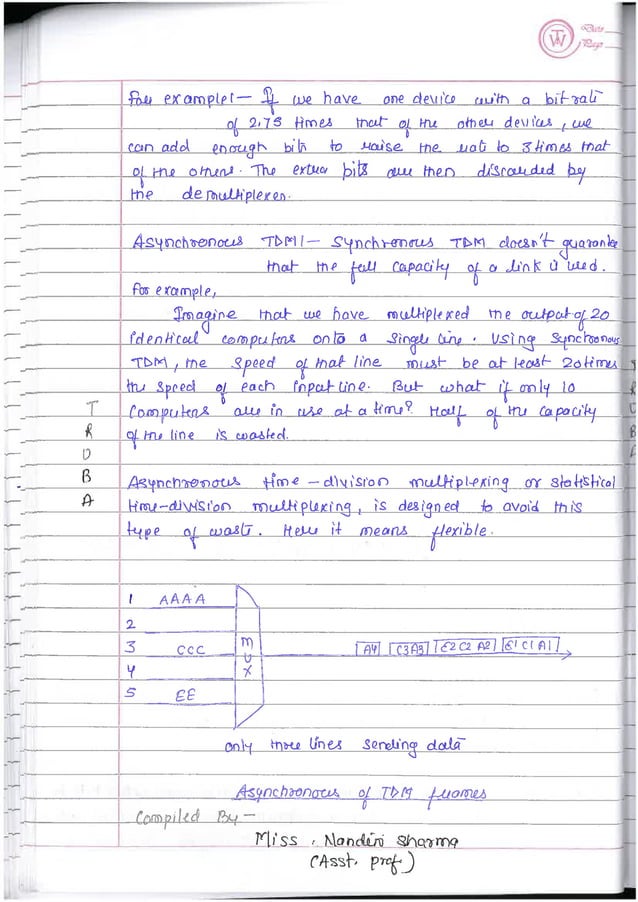 Date
Page
For example:- If we have one device with a bit rate
of 2.75 times that of the other devices, we
can add enough bits to raise the rate to 3 times that
of the others. The extra bits are then discarded by
the demultiplexer.
Asynchronous TDM:- Synchronous TDM doesn't guarantee
that the full capacity of a link is used.
For example,
Imagine that we have multiplexed the output of 20
identical computers onto a single line. Using Synchronous
TDM, the speed of that line must be at least 20 times
the speed of each input line. But what if only 10
computers are in use at a time? Half of the capacity
of the line is wasted.
T
R
U
B
A
Asynchronous time-division multiplexing or statistical
time-division multiplexing, is designed to avoid this
type of waste. Here it means flexible.
1 AAAA
2
3 CCC
4
5 EE
MUX
A4 C3A3 E2 C2 A2 E1 C1 A1
only three lines sending data
Asynchronous of TDM frames
Compiled By -
Miss. Nandini Sharma
(Asst. prof)